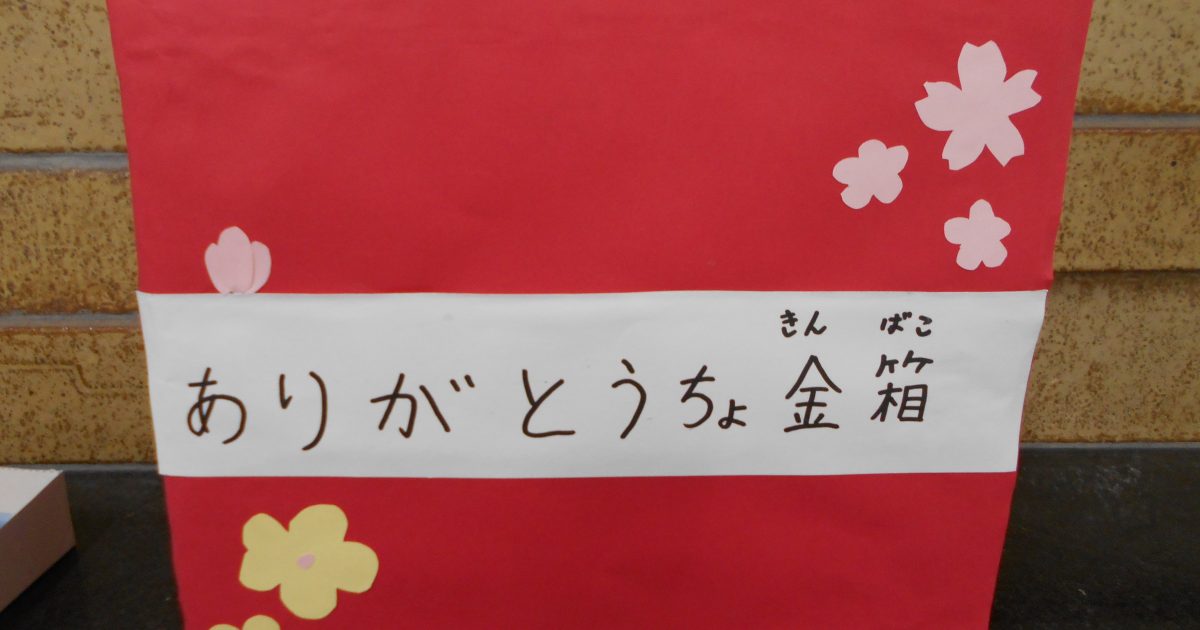 きん ばこ
ありがとうちょ金箱